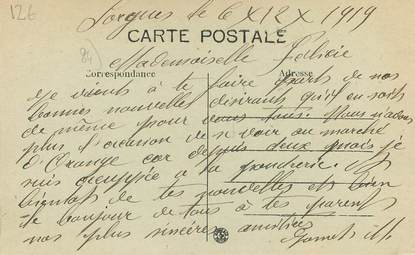 126
Sorgues le 6 X 12 X 1919
CARTE POSTALE
(84)
Mademoiselle Félicie
Correspondance
Adresse
Je viens à te faire part de nos
bonnes nouvelles désirants qu'il en soit
de même pour vous tous. Nous n'avons
plus l'occasion de se voir au marché
d'Orange car depuis deux mois je
suis occupée à la poudrerie.
bientôt de tes nouvelles et bien
le bonjour de tous à tes parent
nos plus sincères amitiés